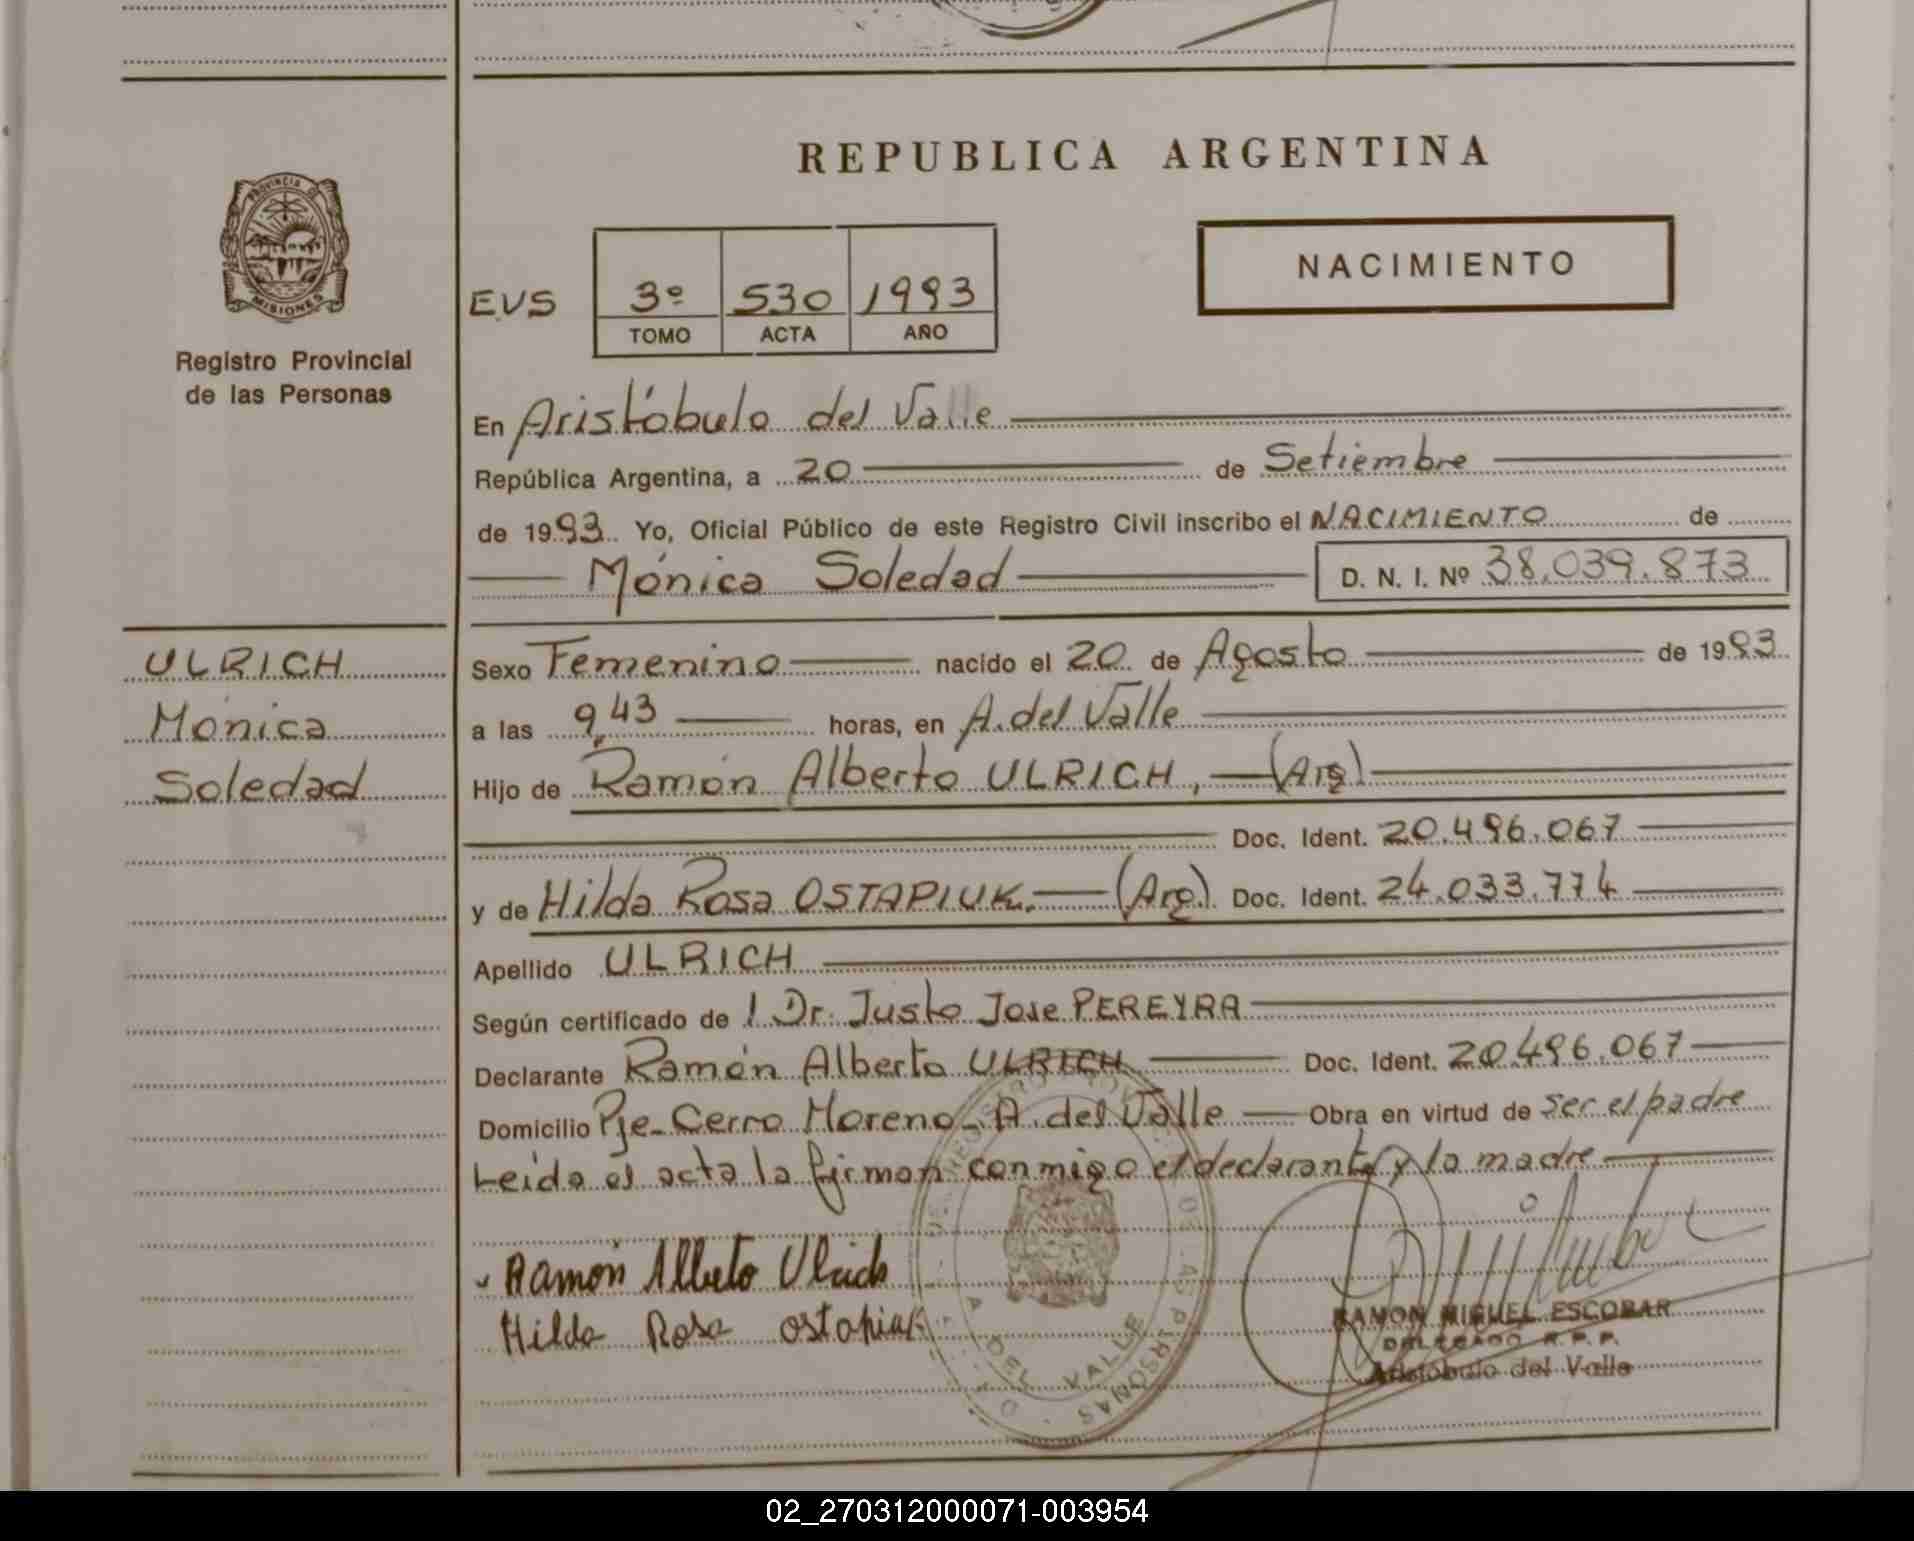 REPUBLICA ARGENTINA
PROVINCIA D
MISIONES
Registro Provincial
de las Personas
NACIMIENTO
EVS 3º 530 1993
TOMO ACTA AÑO
En Aristóbulo del Valle
República Argentina, a 20 de Setiembre
de 1993 Yo, Oficial Público de este Registro Civil inscribo el NACIMIENTO de
Mónica Soledad D. N. I. Nº 38.039.873
ULRICH
Mónica
Soledad
Sexo Femenino nacido el 20 de Agosto de 1993
a las 9,43 horas, en A. del Valle
Hijo de Ramón Alberto ULRICH, (Arg)
Doc. Ident. 20.496.067
y de Hilda Rosa OSTAPIUK. (Arg). Doc. Ident. 24.033.774
Apellido ULRICH
Según certificado de l Dr. Justo Jose PEREYRA
Declarante Ramón Alberto ULRICH Doc. Ident. 20.496.067
Domicilio Pje- Cerro Moreno- A. del Valle Obra en virtud de ser el padre
Leida el acta la firman conmigo el declarante y la madre
Ramón Alberto Ulrich
Hilda Rosa Ostapiuk
A DEL VALLE
RAMON MIGUEL ESCOBAR
DELEGADO R. P. P.
Aristóbulo del Valle
02_270312000071-003954